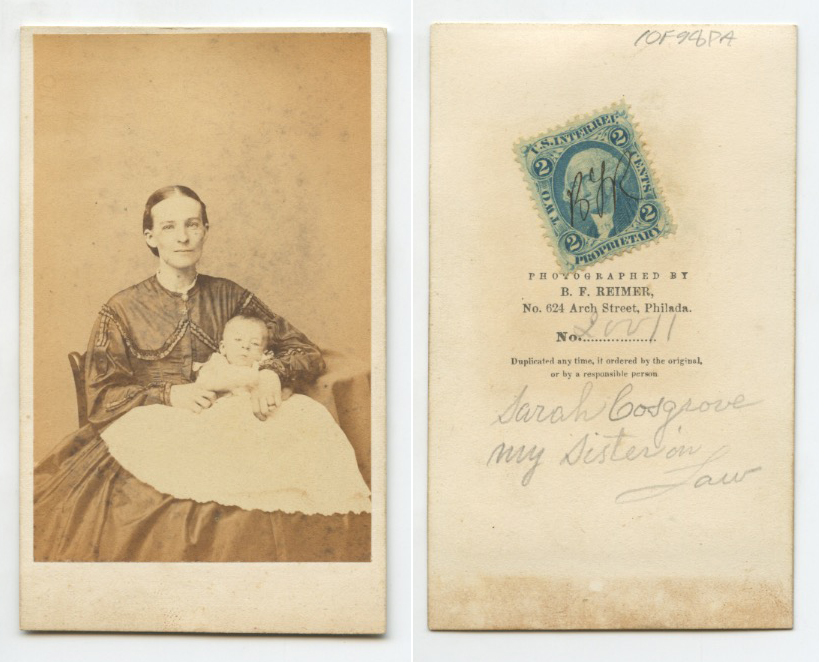 10F98PA
U.S. INTER. REV.
2 2
TWO CENTS
2 2
PROPRIETARY
BFR
PHOTOGRAPHED BY
B. F. REIMER,
No. 624 Arch Street, Philada.
No.
Duplicated any time, if ordered by the original,
or by a responsible person
Sarah Cosgrove
my Sister in
Law